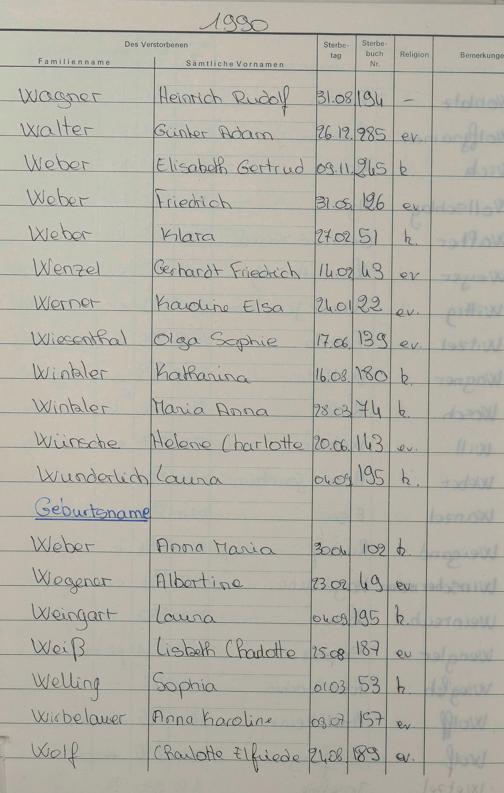 1990
Des Verstorbenen
Familienname Sämtliche Vornamen Sterbe-tag Sterbe-buch Nr. Religion Bemerkunge
Wagner Heinrich Rudolf 31.08 194 –
Walter Günter Adam 26.12. 285 ev.
Weber Elisabeth Gertrud 09.11. 245 k
Weber Friedrich 31.05 126 ev.
Weber Klara 27.02 51 k.
Wenzel Gerhardt Friedrich 14.02 43 ev
Werner Karoline Elsa 24.01 22 ev.
Wiesenthal Olga Sophie 17.06. 139 ev.
Winkler Katharina 16.08. 180 k.
Winkler Maria Anna 28.03 74 k.
Wünsche Helene Charlotte 20.06. 143 ev.
Wunderlich Laura 04.09 195 k.
Geburtsname
Weber Anna Maria 30.04 102 k.
Wegener Albertine 23.02 49 ev
Weingart Laura 04.09 195 k.
Weiß Lisbeth Charlotte 25.08 187 ev
Welling Sophia 01.03 53 k.
Wirbelauer Anna Karoline 09.07 157 ev
Wolf Charlotte Elfriede 24.08 189 ev.